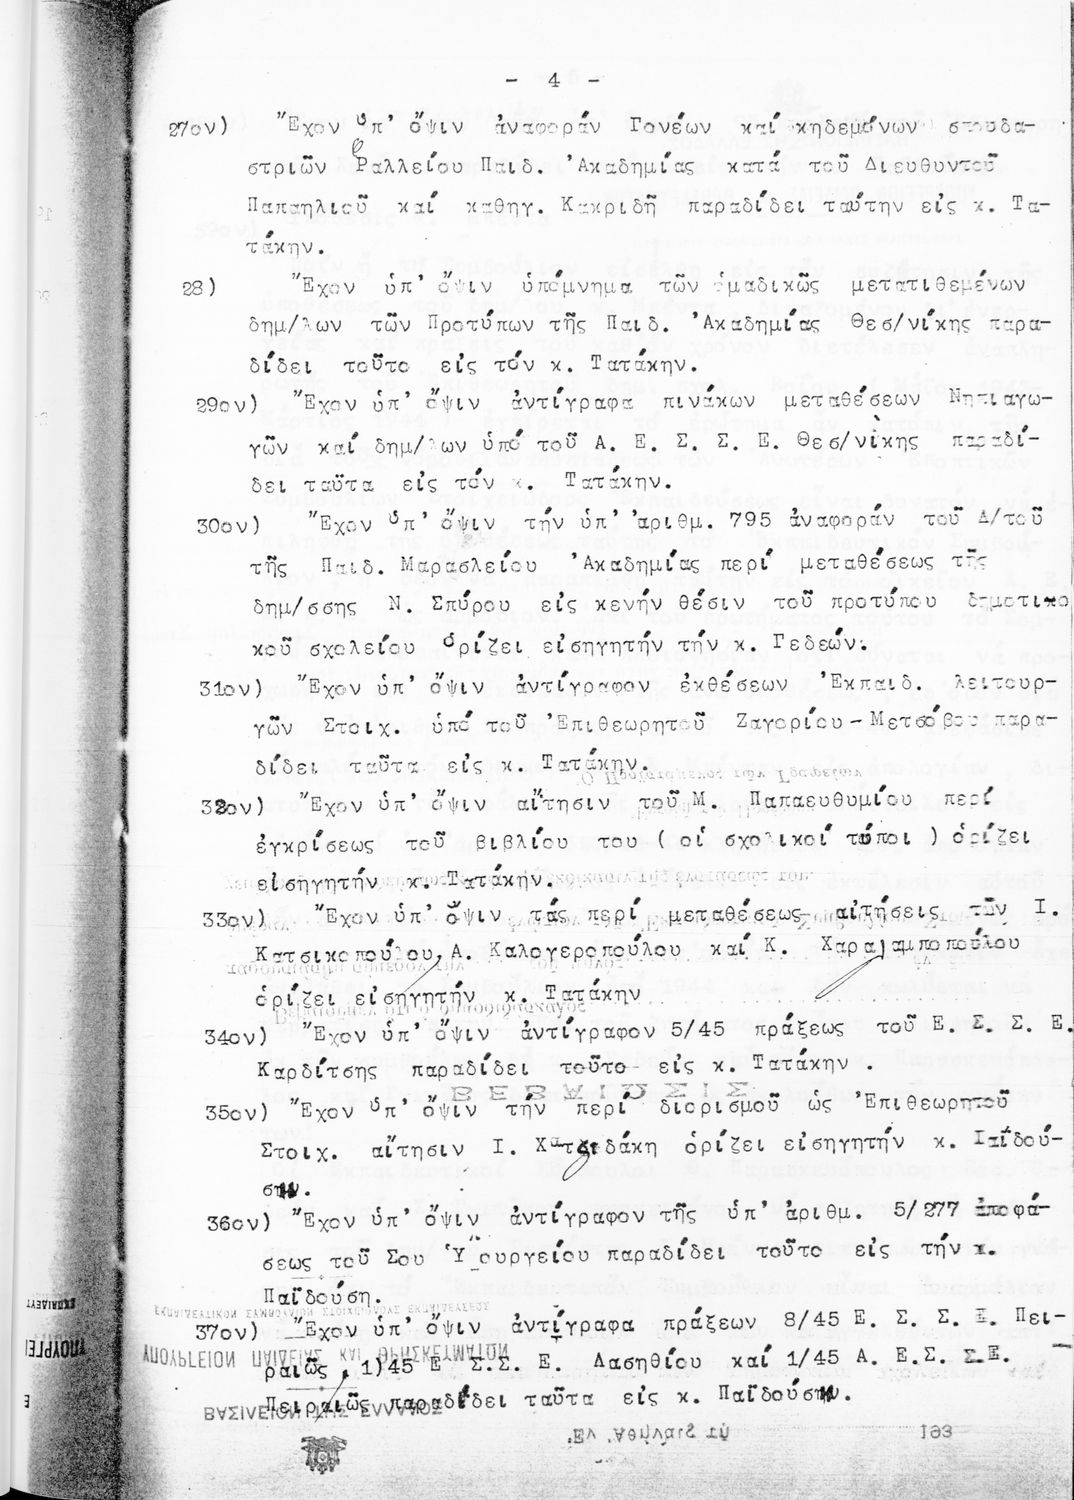 - 4 -
27ον) Ἔχον ὑπ' ὄψιν ἀναφοράν Γονέων καί κηδεμόνων σπουδα-
στριῶν Ραλλείου Παιδ. Ἀκαδημίας κατά τοῦ Διευθυντοῦ
Παπαηλιοῦ καί καθηγ. Κακριδῆ παραδίδει ταύτην εἰς κ. Τα-
τάκην.
28) Ἔχον ὑπ' ὄψιν ὑπόμνημα τῶν ὁμαδικῶς μετατιθεμένων
δημ/λων τῶν Προτύπων τῆς Παιδ. Ἀκαδημίας Θεσ/νίκης παρα-
δίδει τοῦτο εἰς τόν κ. Τατάκην.
29ον) Ἔχον ὑπ' ὄψιν ἀντίγραφα πινάκων μεταθέσεων Νηπιαγω-
γῶν καί δημ/λων ὑπό τοῦ Α. Ε. Σ. Σ. Ε. Θεσ/νίκης παραδί-
δει ταῦτα εἰς τόν κ. Τατάκην.
30ον) Ἔχον ὑπ' ὄψιν τήν ὑπ' ἀριθμ. 795 ἀναφοράν τοῦ Δ/τοῦ
τῆς Παιδ. Μαρασλείου Ἀκαδημίας περί μεταθέσεως τῆς
δημ/σσης Ν. Σπύρου εἰς κενήν θέσιν τοῦ προτύπου δημοτικο
κοῦ σχολείου ὁρίζει εἰσηγητήν τήν κ. Γεδεών.
31ον) Ἔχον ὑπ' ὄψιν ἀντίγραφον ἐκθέσεων Ἐκπαιδ. λειτουρ-
γῶν Στοιχ. ὑπό τοῦ Ἐπιθεωρητοῦ Ζαγορίου - Μετσόβου παρα-
δίδει ταῦτα εἰς κ. Τατάκην.
32ον) Ἔχον ὑπ' ὄψιν αἴτησιν τοῦ Μ. Παπαευθυμίου περί
ἐγκρίσεως τοῦ βιβλίου του ( οἱ σχολικοί τύποι ) ὁρίζει
εἰσηγητήν κ. Τατάκην.
33ον) Ἔχον ὑπ' ὄψιν τάς περί μεταθέσεως αἰτήσεις τῶν Ι.
Κατσικοπούλου, Α. Καλογεροπούλου καί Κ. Χαραλαμποπούλου
ὁρίζει εἰσηγητήν κ. Τατάκην
34ον) Ἔχον ὑπ' ὄψιν ἀντίγραφον 5/45 πράξεως τοῦ Ε. Σ. Σ. Ε.
Καρδίτσης παραδίδει τοῦτο εἰς κ. Τατάκην .
35ον) Ἔχον ὑπ' ὄψιν τήν περί διορισμοῦ ὡς Ἐπιθεωρητοῦ
Στοιχ. αἴτησιν Ι. Χατζιδάκη ὁρίζει εἰσηγητήν κ. Παϊδού-
ση.
36ον) Ἔχον ὑπ' ὄψιν ἀντίγραφον τῆς ὑπ' ἀριθμ. 5/277 ἀποφά-
σεως τοῦ Σου Ὑπουργείου παραδίδει τοῦτο εἰς τήν κ.
Παϊδούση.
37ον) Ἔχον ὑπ' ὄψιν ἀντίγραφα πράξεων 8/45 Ε. Σ. Σ. Ε. Πει-
ραιῶς , 1)45 Ε. Σ.Σ. Ε. Λασηθίου καί 1/45 Α. Ε.Σ. Σ.Ε.
Πειραιῶς παραδίδει ταῦτα εἰς κ. Παϊδούση.